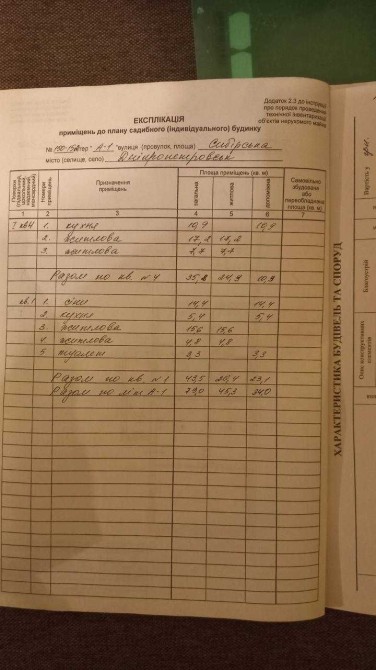 Додаток 2.3 до інструкції
про порядок проведення
технічної інвентаризації
об'єктів нерухомого майна
ЕКСПЛІКАЦІЯ
приміщень до плану садибного (індивідуального) будинку
№ літер " А-1 "вулиця (провулок, площа) Сибірська
місто (селище, село) Дніпропетровськ
Поверхи (підвальний, цокольний, мансардний)
Номери приміщень
Призначення приміщень
Площа приміщень (кв. м)
загальна житлова допоміжна
Самовільно збудована або переобладнана площа (кв. м)
1 2 3 4 5 6 7
1 кв4 1. кухня 10,9 10,9
2. житлова 17,2 17,2
3. житлова 7,7 7,7
Разом по кв. №4 35,8 24,9 10,9
кв.1 1. сіни 14,4 14,4
2. кухня 5,4 5,4
3. житлова 15,6 15,6
4. житлова 4,8 4,8
5. туалет 3,3 3,3
Разом по кв. №1 43,5 20,4 23,1
Разом по літ А-1 79,0 45,3 34,0
ХАРАКТЕРИСТИКА БУДІВЕЛЬ ТА СПОРУД
Опис конструктивних елементів
Благоустрій
Вартість у